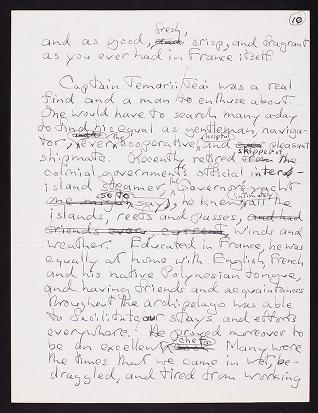 10
fresh,
and as good, and crisp, and fragrant
as you ever had in France itself.
Captain Temarii Teai was a real
find and a man to enthuse about.
One would have to search many a day
to find his equal as gentleman, naviga-
tor, ever the helpful cooperative, and pleasant
shipmate. Recently retired skipper from the
colonial government's official inter-
island steamer, (the Governor's yacht
so to say), he knew intimately all the
islands, reefs and passes, and had
friends ever, current, winds and
weather. Educated in France, he was
equally at home with English, French
and his native Polynesian tongue,
and having friends and acquaintances
throughout the archipelago was able
to facilitate our stays and efforts
everywhere. He proved moreover to
be an excellent chef. Many were
the times that we came in wet, be-
draggled, and tired from working